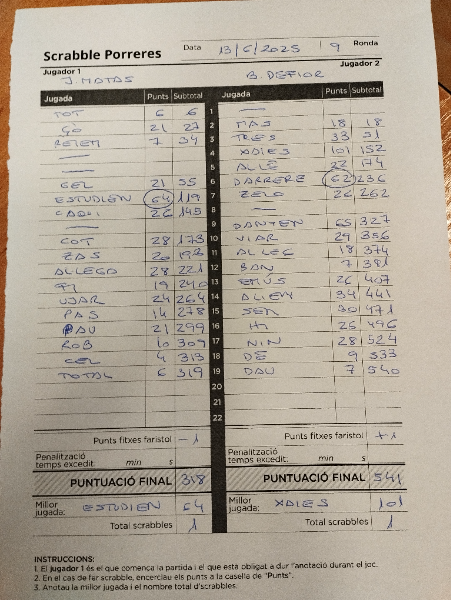 Scrabble Porreres Data 13/6/2025 9 Ronda
Jugador 1 Jugador 2
J. MOTAS B. DEFIOR
Jugada Punts Subtotal Jugada Punts Subtotal
TOT 6 6 1 —
ÇO 21 27 2 MAS 18 18
RETEM 7 34 3 TRES 33 51
— 4 XDIES 101 152
— 5 ALLE 22 174
GEL 21 55 6 DARRERE 62 236
ESTUDIEN 64 119 7 ZELO 26 262
26 145 8 —
— 9 DANTEN 65 327
COT 28 173 10 VIAR 29 356
ZAS 20 193 11 ALLEC 18 374
ALLEGO 28 221 12 BAN 7 381
19 240 13 26 407
UJAR 24 264 14 ALIEN 34 441
PAS 14 278 15 SEN 30 471
PAU 21 299 16 HI 25 496
ROB 10 309 17 NIN 28 524
CEL 4 313 18 DE 9 533
TOTAL 6 319 19 DAU 7 540
20
21
22
Punts fitxes faristol -1 Punts fitxes faristol +1
Penalització temps excedit: min s Penalització temps excedit: min s
PUNTUACIÓ FINAL 318 PUNTUACIÓ FINAL 541
Millor jugada: ESTUDIEN 64 Millor jugada: XDIES 101
Total scrabbles 1 Total scrabbles 1
INSTRUCCIONS:
1. El jugador 1 és el que comença la partida i el que està obligat a dur l'anotació durant el joc.
2. En el cas de fer scrabble, encercleu els punts a la casella de "Punts".
3. Anotau la millor jugada i el nombre total d'scrabbles.